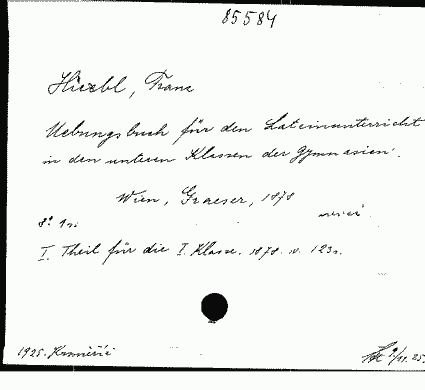 85584
Hiezbl, Franc
Uebungsbuch für den Lateinunterricht
in den unteren Klassen der Gymnasien.
Wien, Graeser, 1878
8° 1v.
I. Theil für die I. Klasse. 1878. v. 123s.
1925. Kroměříž
9/11.25.